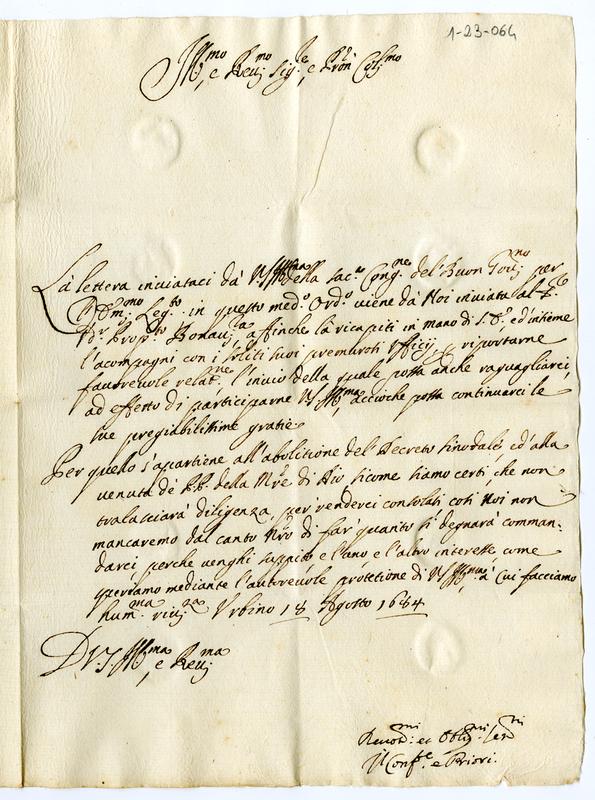 1-23-064
Ill.mo, e Reu.mo Sig.re, e Pron Col.mo
La lettera inuiataci dà V.S. Ill.ma della Sac. Cong.ne del Buon Gou.no per
Em.mo Leg.to in questo med.o Ord.o uiene da Noi inuiata al
Prop.to Bonau.ra, a finche la ricapiti in mano di S. E. ed insieme
l'acompagni con i soliti suoi premurosi Vfficij, e riportarne
fauoreuole relat.ne, l'inuio della quale possa anche raguagliarci,
ad effetto di participarne V.S. Ill.ma, accioche possa continuarci le
sue pregiabilissime gratie
Per quello s'apartiene all'abolitione del Decreto sinodale, ed'alla
uenuta de PP. della M.re di Dio, sicome siamo certi, che non
tralasciarà diligenza, per renderci consolati, così Noi non
mancaremo dal canto N.ro di far' quanto si degnarà comman-
darci, perche uenghi suppito, e l'uno, e l'altro interesse, come
speriamo mediante l'autoreuole protetione di V.S. Ill.ma, à Cui facciamo
hum.ma riu.za Vrbino 18 Agosto 1684
Di V.S. Ill.ma, e Reu.ma
Deuot.mi et Oblig.mi Ser.ri
Il Conf.re e Priori.